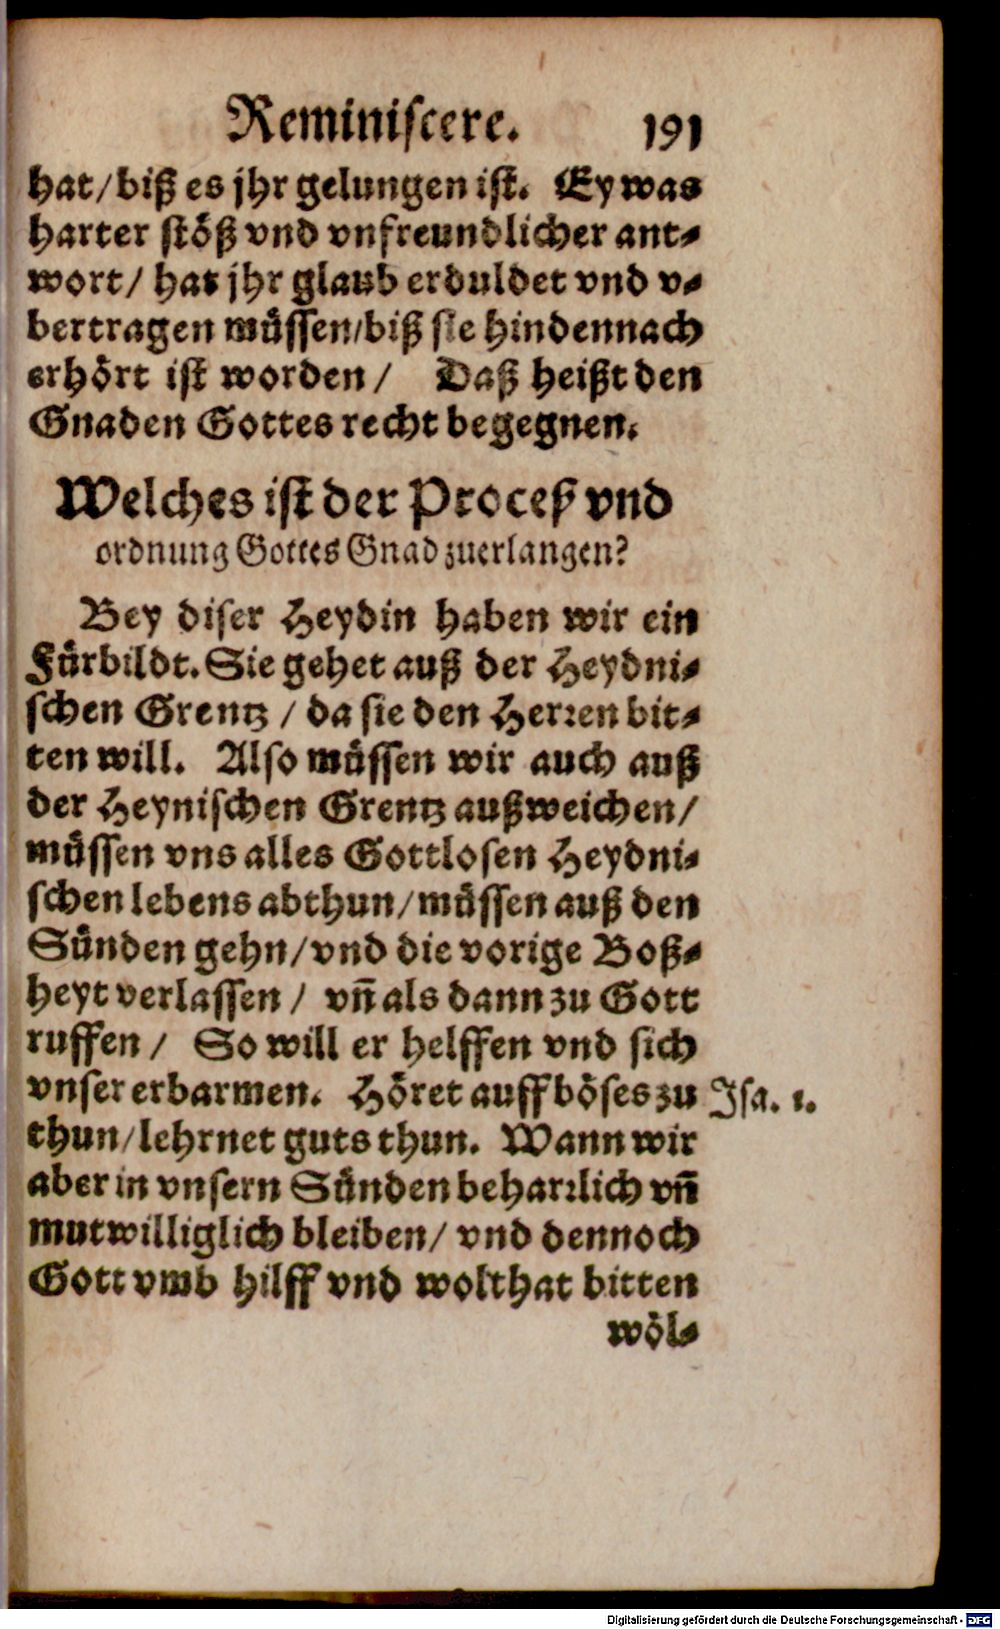 Reminiscere. 191
hat/biß es jhr gelungen ist. Ey was
harter stöß vnd vnfreundlicher ant-
wort/ hat jhr glaub erduldet vnd v-
bertragen müssen/biß sie hindennach
erhört ist worden/ Daß heißt den
Gnaden Gottes recht begegnen.
Welches ist der Proceß vnd
ordnung Gottes Gnad zuerlangen?
Bey diser Heydin haben wir ein
Fürbildt. Sie gehet auß der Heydni-
schen Grentz / da sie den Herren bit-
ten will. Also müssen wir auch auß
der Heynischen Grentz außweichen/
müssen vns alles Gottlosen Heydni-
schen lebens abthun/müssen auß den
Sünden gehn/vnd die vorige Boß-
heyt verlassen / vn̄ als dann zu Gott
ruffen / So will er helffen vnd sich
vnser erbarmen. Höret auff böses zu Isa. 1.
thun/lehrnet guts thun. Wann wir
aber in vnsern Sünden beharrlich vn̄
mutwilliglich bleiben/ vnd dennoch
Gott vmb hilff vnd wolthat bitten
wöl-
Digitalisierung gefördert durch die Deutsche Forschungsgemeinschaft - DFG